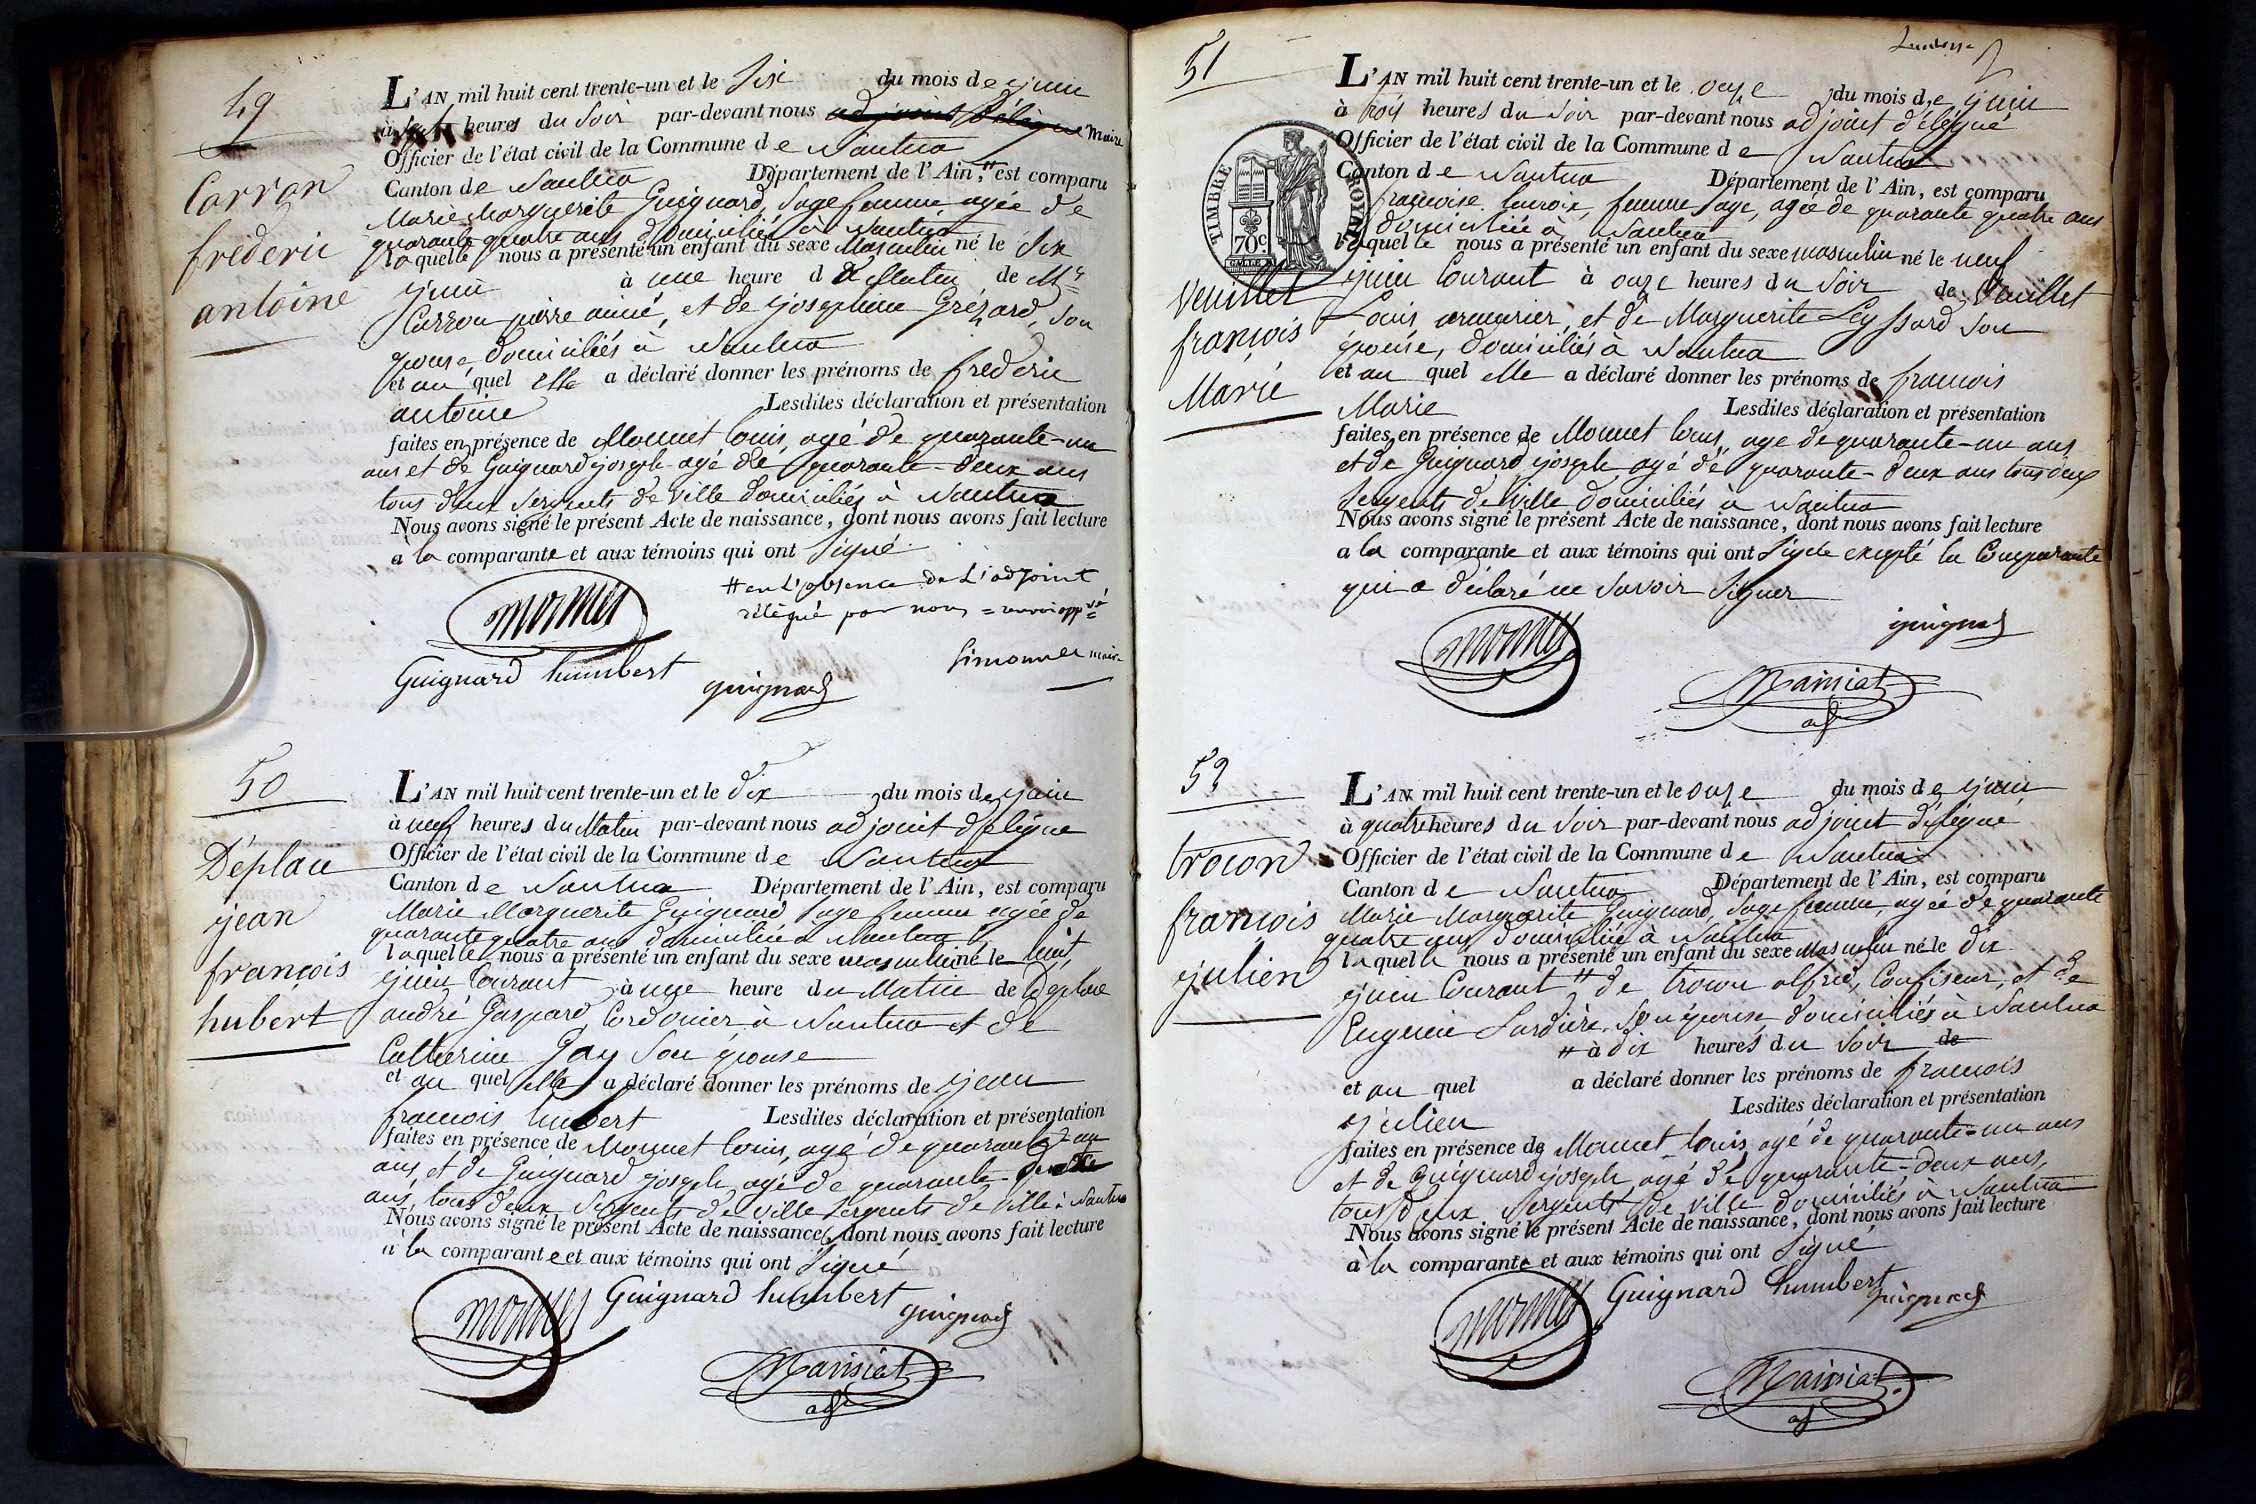 49
Carran
frédéric
antoine
L'AN mil huit cent trente-un et le Six du mois de juin
à heures du Soir par-devant nous adjoint délégué maire
Officier de l'état civil de la Commune de Nantua
Canton de Nantua Département de l'Ain, # est comparu
Marie Marguerite Guignard, Sage femme agée de
quarante quatre ans domiciliée à Nantua
laquelle nous a présenté un enfant du sexe Masculin né le Six
juin à une heure du Matin de Mr
Carron pierre aimé, et de josephine Grézard, Son
épouse domiciliés à Nantua
et au quel elle a déclaré donner les prénoms de frederic
antoine Lesdites déclaration et présentation
faites en présence de Monnet louis, agé de quarante-un
ans et de Guignard joseph agé de quarante-deux ans
tous deux Sergents de Ville domiciliés à Nantua
Nous avons signé le présent Acte de naissance, dont nous avons fait lecture
a la comparante et aux témoins qui ont Signé
# en L'absence de L'adjoint
délégué par nous = renvoi appvé =
monnet
Guignard humbert guignard Simonnet maire
50
Déplace
jean
françois
hubert
L'AN mil huit cent trente-un et le dix du mois de juin
à neuf heures du Matin par-devant nous adjoint délégué
Officier de l'état civil de la Commune de Nantua
Canton de Nantua Département de l'Ain, est comparu
Marie Marguerite Guignard Sage femme agée de
quarante quatre ans domiciliée à Nantua
laquelle nous a présenté un enfant du sexe masculin né le huit
juin Courant à une heure du Matin de Deplace
andré Gaspard Cordonier à Nantua et de
Catherine Gay Son épouse
et au quel elle a déclaré donner les prénoms de jean
francois humbert Lesdites déclaration et présentation
faites en présence de Monnet louis, agé de quarante-un
ans, et de Guignard joseph, agé de quarante-deux
ans, tous deux Sergents de ville Sergents de Ville à Nantua
Nous avons signé le présent Acte de naissance, dont nous avons fait lecture
à la comparante et aux témoins qui ont Signé
monnet Guignard humbert guignard
Maissiat
adj
51
Veuillet
françois
Marie
TIMBRE ROYAL
70c.
L'AN mil huit cent trente-un et le onze du mois de juin
à trois heures du Soir par-devant nous adjoint délégué
Officier de l'état civil de la Commune de Nantua
Canton de Nantua Département de l'Ain, est comparu
françoise lacroix, femme Sage, agée de quarante quatre ans
domiciliée à Nantua
laquelle nous a présenté un enfant du sexe masculin né le neuf
juin Courant à onze heures du Soir de Veuillet
Louis armurier, et de Marguerite Leyssard Son
épouse, domiciliés à Nantua
et au quel elle a déclaré donner les prénoms de francois
Marie Lesdites déclaration et présentation
faites en présence de Monnet louis, agé de quarante-un ans
et de Guignard joseph agé de quarante-deux ans tous deux
Sergents de Ville domiciliés à Nantua
Nous avons signé le présent Acte de naissance, dont nous avons fait lecture
a la comparante et aux témoins qui ont Signé excepté la Comparante
qui a déclaré ne Savoir Signer
monnet guignard
Maissiat
adj
52
trocon
françois
julien
L'AN mil huit cent trente-un et le onze du mois de juin
à quatre heures du Soir par-devant nous adjoint délégué
Officier de l'état civil de la Commune de Nantua
Canton de Nantua Département de l'Ain, est comparu
Marie Marguerite Guignard, Sage femme, agée de quarante
quatre ans domiciliée à Nantua
laquelle nous a présenté un enfant du sexe Masculin né le dix
juin Courant # de trocon alfred, Confiseur, et de
Eugenie Lardière Son épouse domiciliés à Nantua
# à dix heures du Soir de
et au quel a déclaré donner les prénoms de francois
julien Lesdites déclaration et présentation
faites en présence de Monnet louis, agé de quarante-un ans
et de guignard joseph, agé de quarante-deux ans,
tous deux Sergents de Ville domiciliés à Nantua
Nous avons signé le présent Acte de naissance, dont nous avons fait lecture
à la comparante et aux témoins qui ont Signé
monnet Guignard humbert guignard
Maissiat
adj